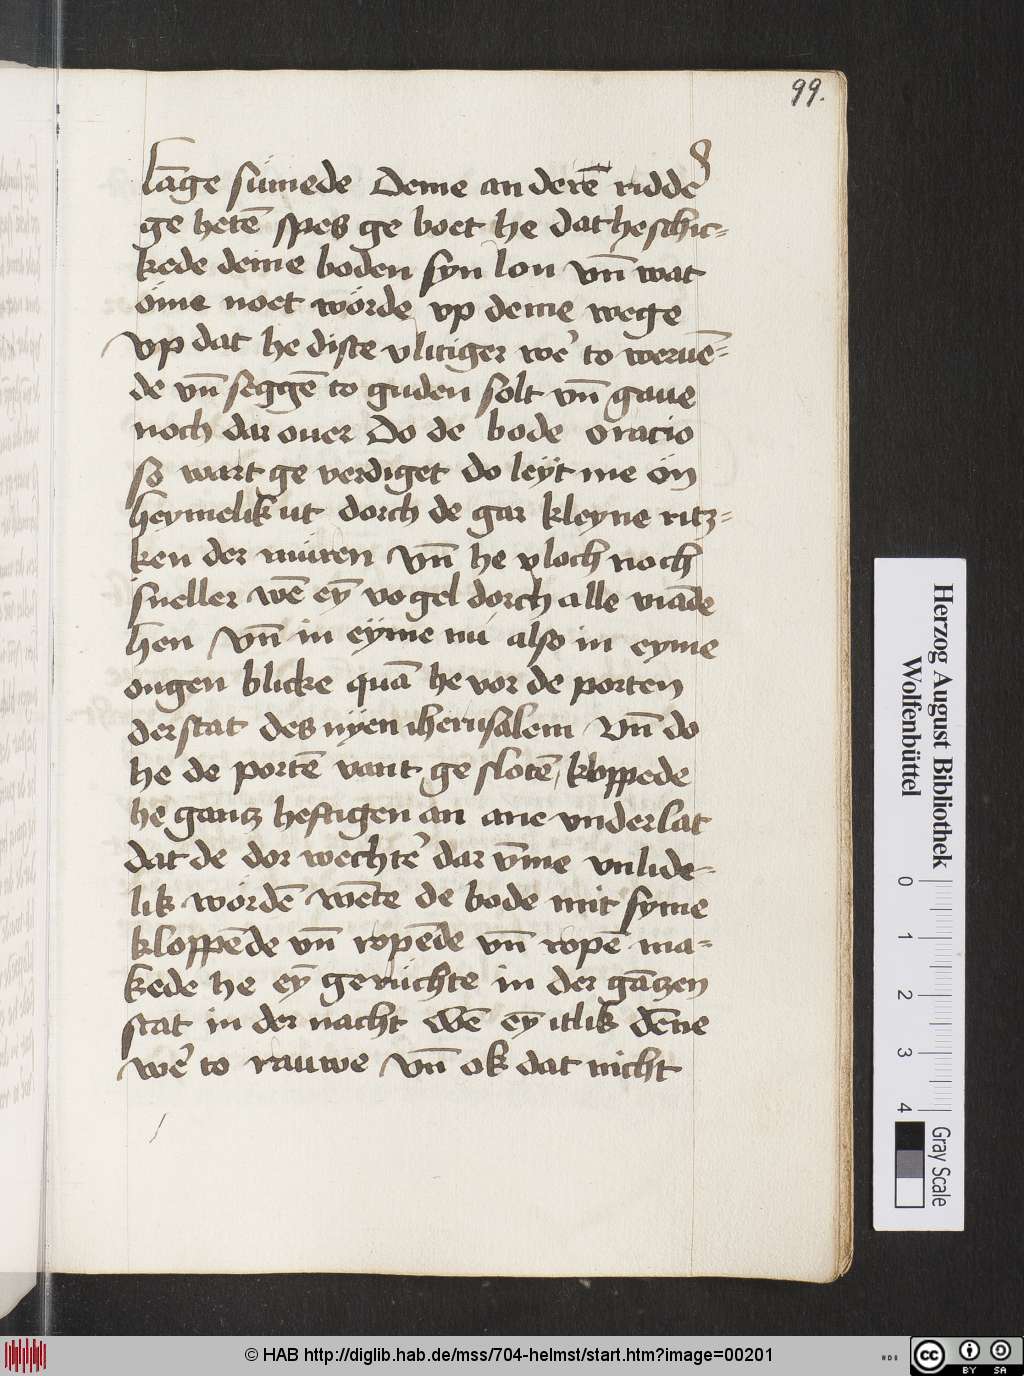 99.
lāge sümede Deme an derē ridder
ge hetē spes ge boet he dat he schic-
kede deme boden syn lon vn̄ wat
öme noet wörde vp deme wege
vp dat he diste vlitiger we᷑ to weruē-
de vn̄ seggē to guden solt vn̄ gaue
noch dar ouer Do de bode oracio
so wart ge verdiget do leÿt me ön
heymelik ut dorch de gar kleyne ritz-
ken der müren vn̄ he vloch noch
sneller wē eȳ vogel dorch alle viāde
hen vn̄ in eÿme nü also in eyme
ougen blicke quā he vor de porten
der stat des nÿen iherusalem vn̄ do
he de portē vant ge slotē, kloppede
he gantz hefftigen an ane vnderlat
dat de dor wechte᷑ dar v̄me vnlide-
lik wördē wēte de bode mit syme
kloppēde vn̄ ropēde vn̄ ropē ma-
kede he eȳ gerüchte in der gātzen
stat in der nacht wē eȳ itlik dēne
we᷑ to rauwe vn̄ ok dat nicht
Herzog August Bibliothek
Wolfenbüttel
0 1 2 3 4
Gray Scale
© HAB http://diglib.hab.de/mss/704-helmst/start.htm?image=00201
cc BY SA